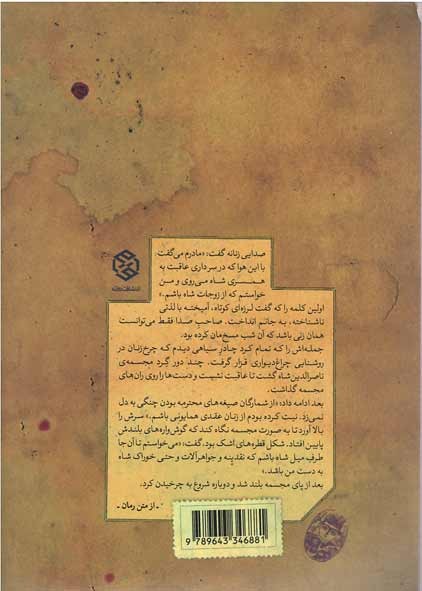 صدایی زنانه گفت: «مادرم می‌گفت
با این هوا که در سر داری عاقبت به
همسری شاه می‌روی و من
خواستم که از زوجات شاه باشم.»
اولین کلمه را که گفت لرزه‌ای کوتاه، آمیخته با لذتی
ناشناخته، به جانم انداخت. صاحب صدا فقط می‌توانست
همان زنی باشد که آن شب مسخ‌مان کرده بود.
جمله‌اش را که تمام کرد چادرِ سیاهی دیدم که چرخ‌زنان در
روشنایی چراغ دیواری قرار گرفت. چند دور گِرد مجسمه‌ی
ناصرالدین‌شاه گشت تا عاقبت نشست و دست‌ها را روی ران‌های
مجسمه گذاشت.
بعد ادامه داد: «از شمارگان صیغه‌های محترمه بودن چنگی به دل
نمی‌زد. نیت کرده بودم از زنان عقدی همایونی باشم.» سرش را
بالا آورد تا به صورت مجسمه نگاه کند که گوش‌واره‌های بلندش
پایین افتاد. شکل قطره‌های اشک بود. گفت: «می‌خواستم تا آن‌جا
طرفِ میل شاه باشم که نقدینه و جواهرآلات و حتی خوراک شاه
به دست من باشد.»
بعد از پای مجسمه بلند شد و دوباره شروع به چرخیدن کرد.
- از متن رمان -
9 789643 346881